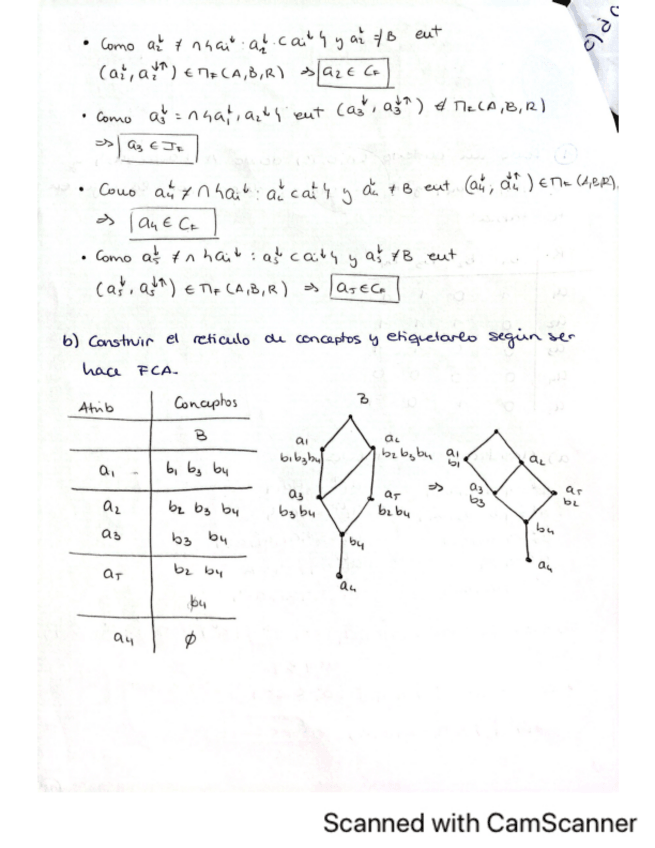 • Como a₂↓ ≠ ∩{aᵢ↓ : a₂↓ ⊂ aᵢ↓} y a₂↓ ≠ B ent
(a₂↓, a₂↓↑) ∈ Π_F (A,B,R) ⇒ a₂ ∈ C_F
• Como a₃↓ = ∩{a₁↓, a₂↓} ent (a₃↓, a₃↓↑) ∉ Π_F (A,B,R)
⇒ a₃ ∈ I_F
• Como a₄↓ ≠ ∩{aᵢ↓ : a₄↓ ⊂ aᵢ↓} y a₄↓ ≠ B ent (a₄↓, a₄↓↑) ∈ Π_F (A,B,R).
⇒ a₄ ∈ C_F
• Como a₅↓ ≠ ∩{aᵢ↓ : a₅↓ ⊂ aᵢ↓} y a₅↓ ≠ B ent
(a₅↓, a₅↓↑) ∈ Π_F (A,B,R) ⇒ a₅ ∈ C_F
b) Construir el retículo de conceptos y etiquetarlo según se
hace FCA.
Atrib Conceptos
B
a₁ b₁ b₃ b₄
a₂ b₂ b₃ b₄
a₃ b₃ b₄
a₅ b₂ b₄
b₄
a₄ ∅
B
a₁ a₂
b₁b₃b₄ b₂b₃b₄
a₃ a₅
b₃b₄ b₂b₄
b₄
a₄
⇒
a₁ a₂
b₁
a₃ a₅
b₃ b₂
b₄
a₄
Scanned with CamScanner